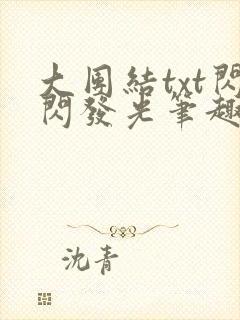 大團結txt閃
閃發光筆趣
沈青